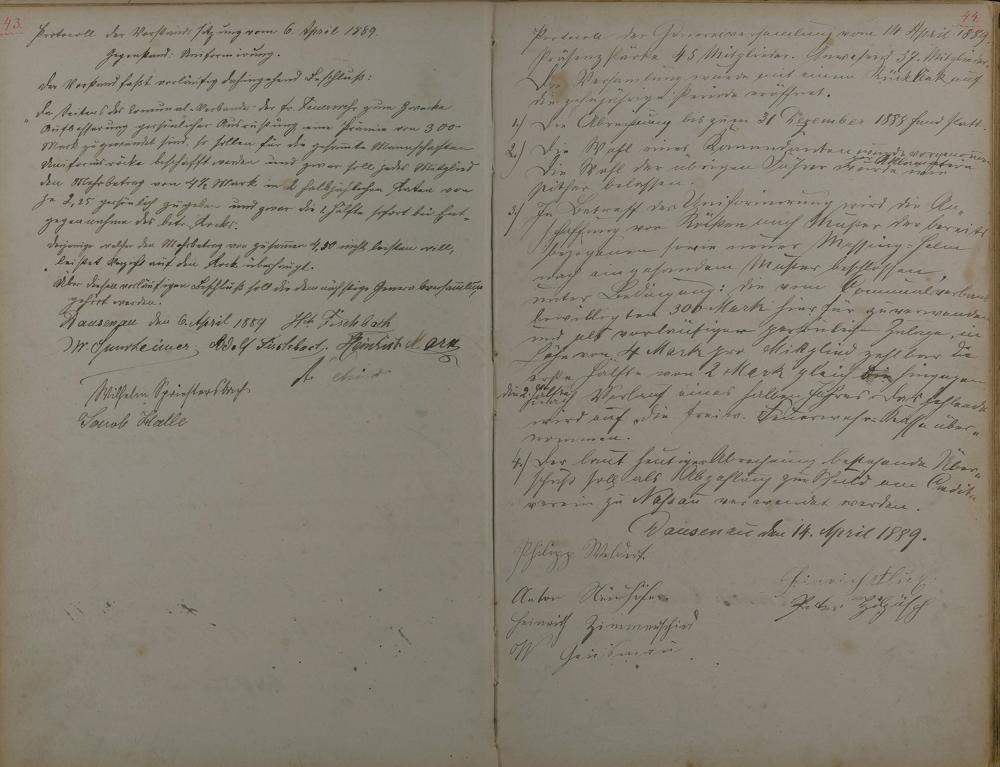 43.
Protocoll der Vorstands Sitzung vom 6. April 1889.
Gegenstand: Uniformirung.
Der Vorstand faßt vorläufig dahingehend Beschluß:
"Da Seitens des Comunal-Verbands der fr. Feuerwehr zum Zwecke
Aufbesserung persönlicher Ausrüstung eine Prämie von 300
Mark zugewendet sind, so sollen für die gesamte Mannschaften
Uniformröcke beschafft werden und zwar soll jedes Mitglied
den Mehrbetrag von 4½ Mark in 2 halbjährlichen Raten von
je 2,25 persönlich zugeben und zwar die 1. Hälfte sofort bei Ent-
gegennahme des betr. Rocks.
Derjenige welcher den Mehrbetrag von zusammen 4,50 nicht leisten will,
leistet Verzicht auf den Rock überhaupt.
Über diesen vorläufigen Beschluß soll die demnächstige Generalversammlung
gehört werden.
Dausenau den 6. April 1889 Hch Fischbach
W. Sunsheimer, Adolf Fischbach. Heinrich Marx
Wilhelm Spriestersbach
Jacob Halle
44.
Protocoll der Generalversammlung vom 14 April 1889.
Präsenzstärke 45 Mitglieder. Anwesend 37 Mitglieder.
Die Versammlung wurde mit einem Rückblick auf
die gehabjährige Periode eröffnet.
1.) Die Abrechnung bis zum 31 Dezember 1888 fand statt.
2.) Die Wahl eines Kommandanten wurde vorgenommen
Die Wahl der übrigen Führer wurde wie
seither belassen. per Aklamation
3.) In Betreff der Uniformierung wird die An-
schaffung von Röcken nach Muster der bereits
bezogenen sowie neuer Messing-Helm
nach angesandem Muster beschlossen,
unter Bedingung: die vom Communalverband
bewilligten 300 Mark hierfür zu verwenden
und als vorläufiger persönliche Zulage, in
Höhe von 4 Mark pro Mitglied zahlbar die
erste Hälfte von 2 Mark gleich hingegen
die 2. Hälfte nach Verlauf eines halben Jahres. Das fehlende
wird auf die freiw. Feuerwehr-Kasse über-
nommen.
4.) Der laut heutiger Abrechnung bestehende Über-
schuß soll als Abzahlung zur Schuld am Credit-
verein zu Nassau verwendet werden.
Dausenau den 14. April 1889.
Philipp Weldert
Heinrich
Anton
Peter
Heinrich Zimmerschied
W Geismar